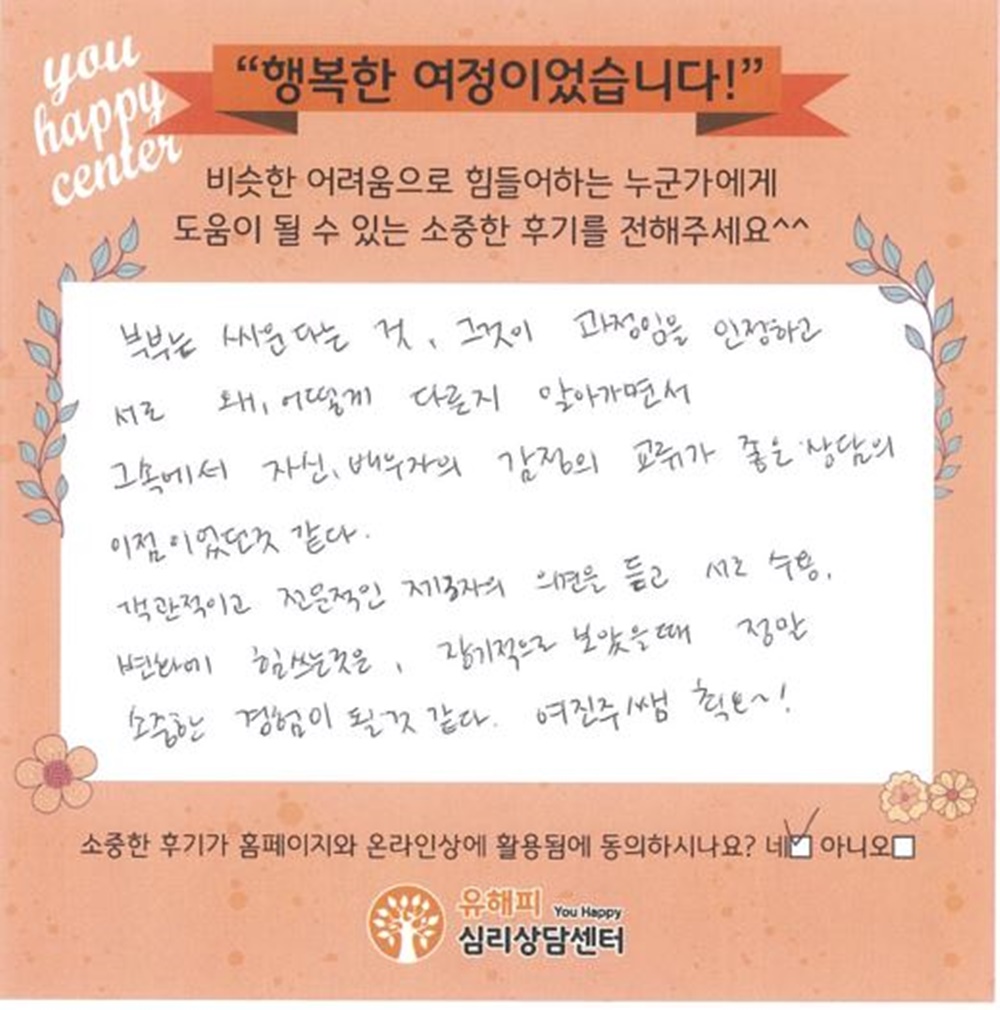 you
happy
center
“행복한 여정이었습니다!”
비슷한 어려움으로 힘들어하는 누군가에게
도움이 될 수 있는 소중한 후기를 전해주세요^^
부부는 싸운다는 것, 그것이 과정임을 인정하고
서로 왜, 어떻게 다른지 알아가면서
그속에서 자신, 배우자의 감정의 교류가 좋은 상담의
이점이었던것 같다.
객관적이고 전문적인 제3자의 의견을 듣고 서로 수용,
변화에 힘쓰는것은, 장기적으로 보았을때 정말
소중한 경험이 될것 같다. 여진주쌤 최고~!
소중한 후기가 홈페이지와 온라인상에 활용됨에 동의하시나요? 네 아니오
유해피 You Happy
심리상담센터